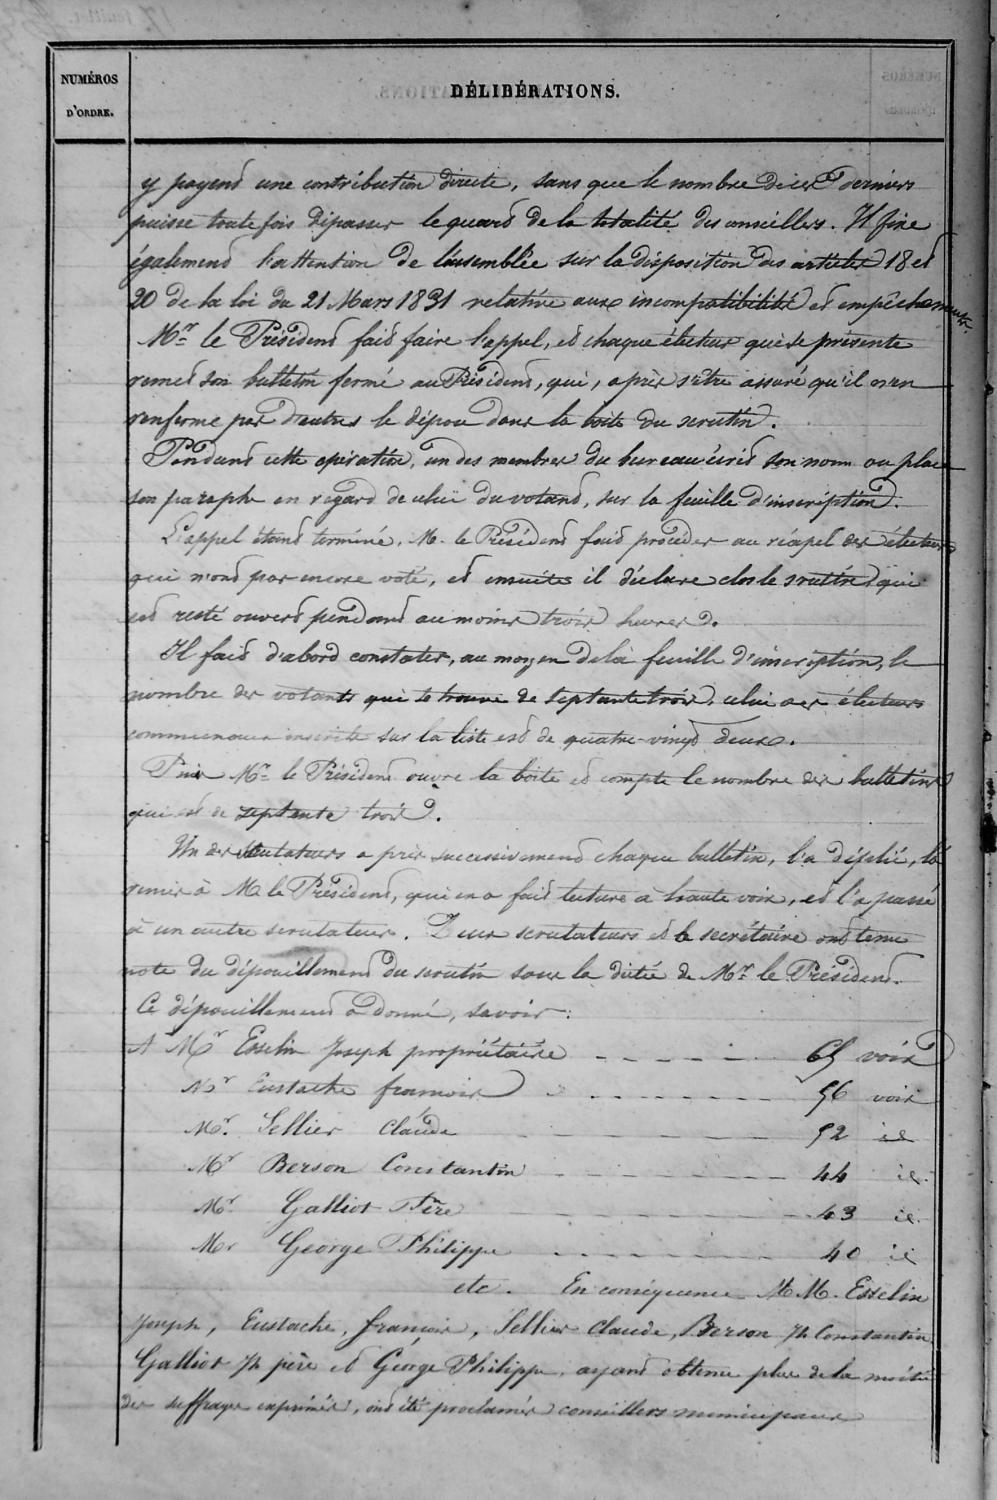 NUMÉROS
D'ORDRE.
DÉLIBÉRATIONS.
y payent une contribution directe, sans que le nombre de ces derniers
puisse toute fois dépasser le quart de la totalité des conseillers. Il fixe
également l'attention de l'assemblée sur la disposition des articles 18 et
20 de la loi du 21 Mars 1831 relative aux incompatibilités et empêchements.
Mr le Président fait faire l'appel, et chaque électeur qui se présente
remet son bulletin fermé au Président, qui, après s'être assuré qu'il n'en
renferme pas d'autres le dépose dans la boîte du scrutin.
Pendant cette opération, un des membres du bureau écrit son nom ou place
son paraphe en regard de celui du votant, sur la feuille d'inscription.
L'appel étant terminé, M. le Président fait procéder au réapel des électeurs
qui n'ont pas encore voté, et ensuite il déclare clos le scrutin, qui
est resté ouvert pendant au moins trois heures.
Il fait d'abord constater, au moyen de la feuille d'inscription, le
nombre des votants qui se trouve de septante trois, celui des électeurs
communaux inscrits sur la liste est de quatre-vingt deux.
Puis Mr le Président ouvre la boîte et compte le nombre des bulletins
qui est de septante trois.
Un des scrutateurs a pris successivement chaque bulletin, l'a déplié, l'a
remis à M. le Président, qui en a fait lecture à haute voix, et l'a passé
à un autre scrutateur. Deux scrutateurs et le secrétaire ont tenu
note du dépouillement du scrutin sous la dictée de Mr le Président.
Ce dépouillement a donné, savoir:
A Mr Esselin Joseph propriétaire 65 voix
Mr Eustache françois 56 voix
Mr. Sellier Claude 52 id
Mr Berson Constantin 44 id
Mr. Galliot Père 43 id
Mr George Philippe 40 id
etc. En conséquence M M. Esselin
Joseph, Eustache, françois, Sellier Claude, Berson Jh Constantin
Galliot Jh père et George Philippe, ayant obtenu plus de la moitié
des suffrages exprimés, ont été proclamés conseillers municipaux